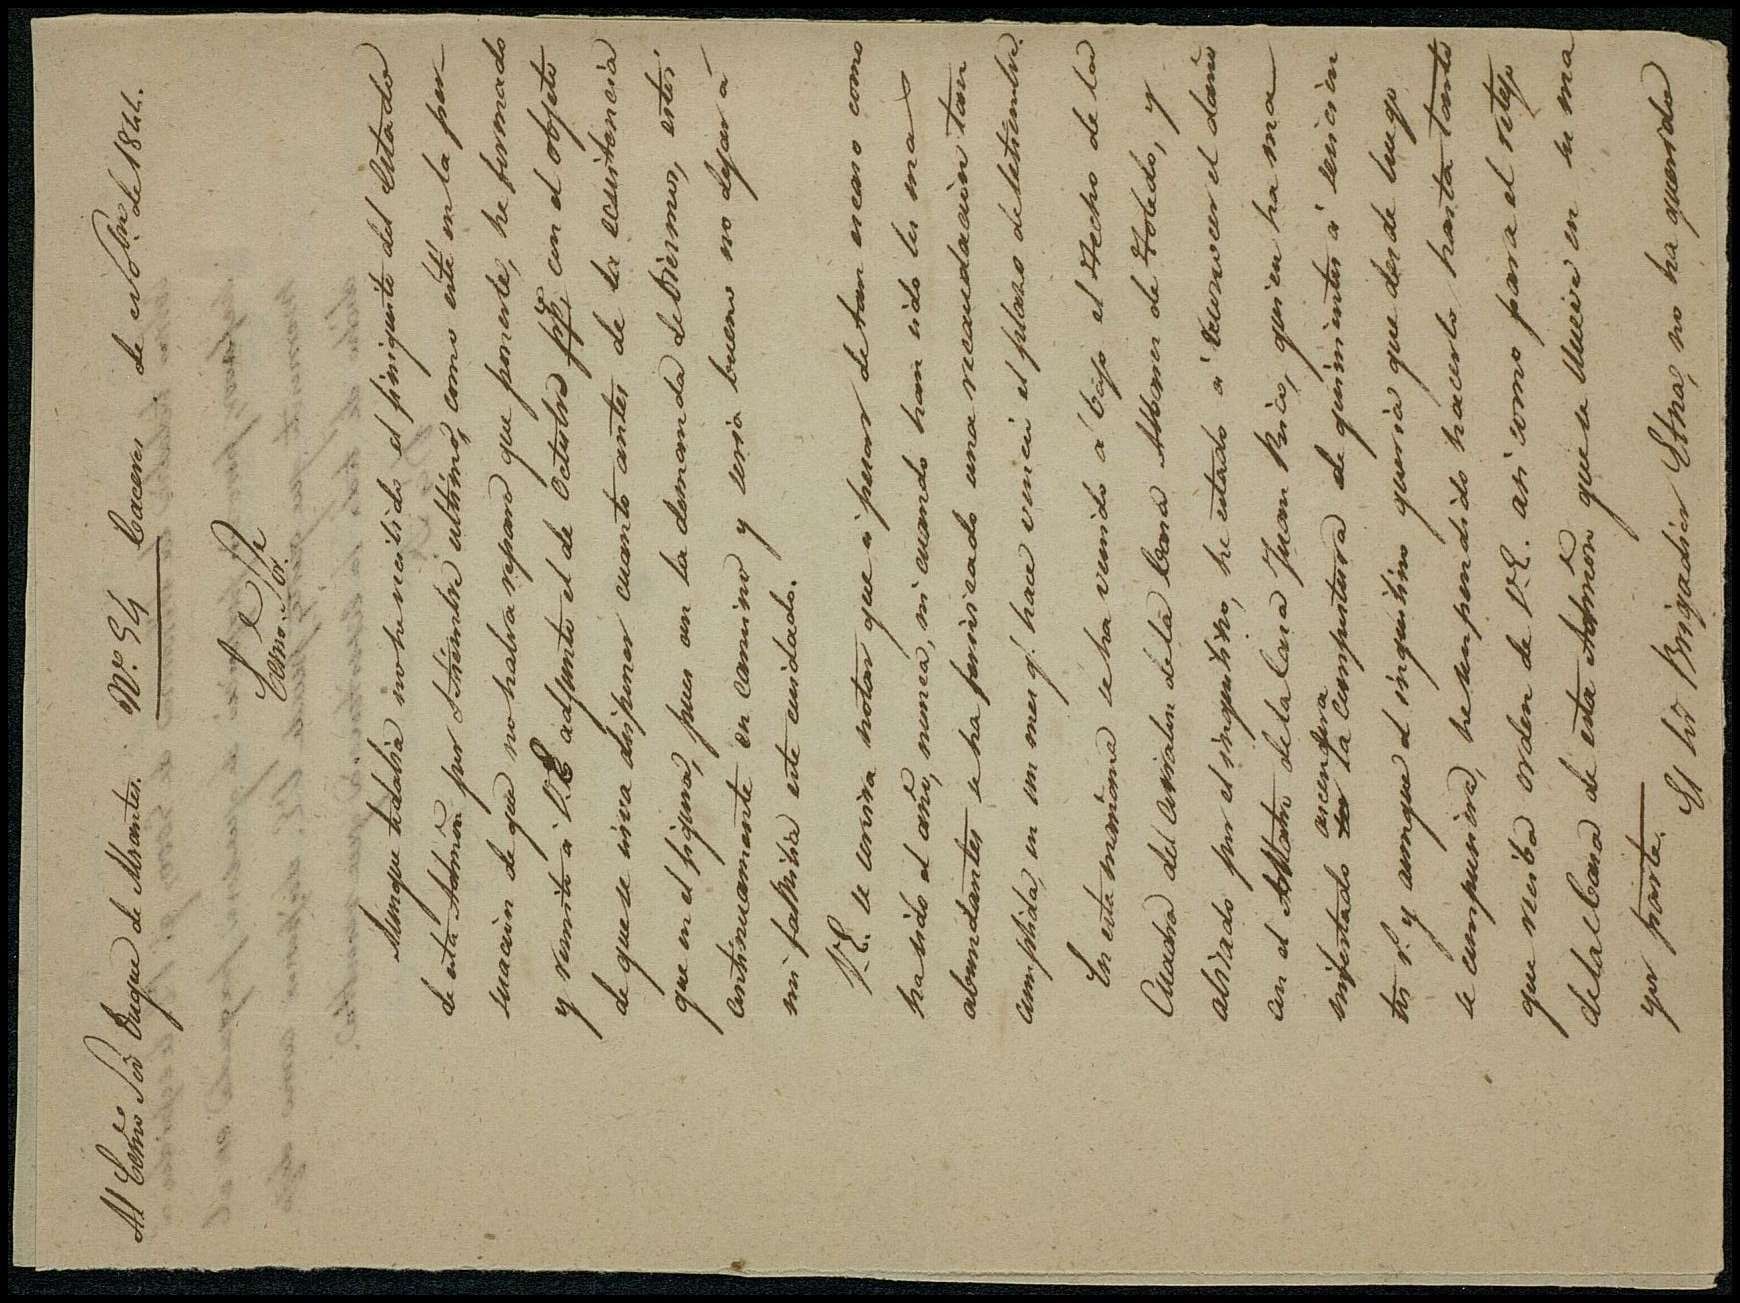 Al Exmo Sor Duque de Abrantes. Nº. 54 Caceres de Nbre. de 1844.
Exmo. Sor.
Aunque todabia no he recibido el finiquito del Estado
de esta Admon. por Setiembre ultimo, como esté en la per-
suacion de que no habra reparo que ponerle, he formado
y remito a V.E. adjunto el de Octubre con el objeto
de que se sirva disponer cuanto antes de la ecsistencia
que en el figura, pues con la demanda de Diezmos, estoi
continuamente en camino y seria bueno no dejar á
mi familia este cuidado.
V.E. se servira notar que á pesar de tan escaso como
ha sido el año, nunca, ni cuando han sido los mas
abundantes se ha verificado una recaudacion tan
cumplida, en un mes q. hace vencio el plazo de Setiembre.
En esta mañana se ha venido á bajo el techo de la
Cuadra del Corralon de la Casa Albaner de Toledo, y
abisado por el inquilino, he estado á reconocer el daño
con el de la Casa Juan Rico, quien ha ma
nifestado ascendera la Compostura de quinientos á seiscien
tos r.s y aunque el inquilino queria que desde luego
se compusiera, he suspendido hacerlo hasta tanto
que reciba orden de V.E. asi como para el retejo
de la Casa de esta Admon que se llueve en su ma
yor parte.
El Sor Brigadier no ha querido